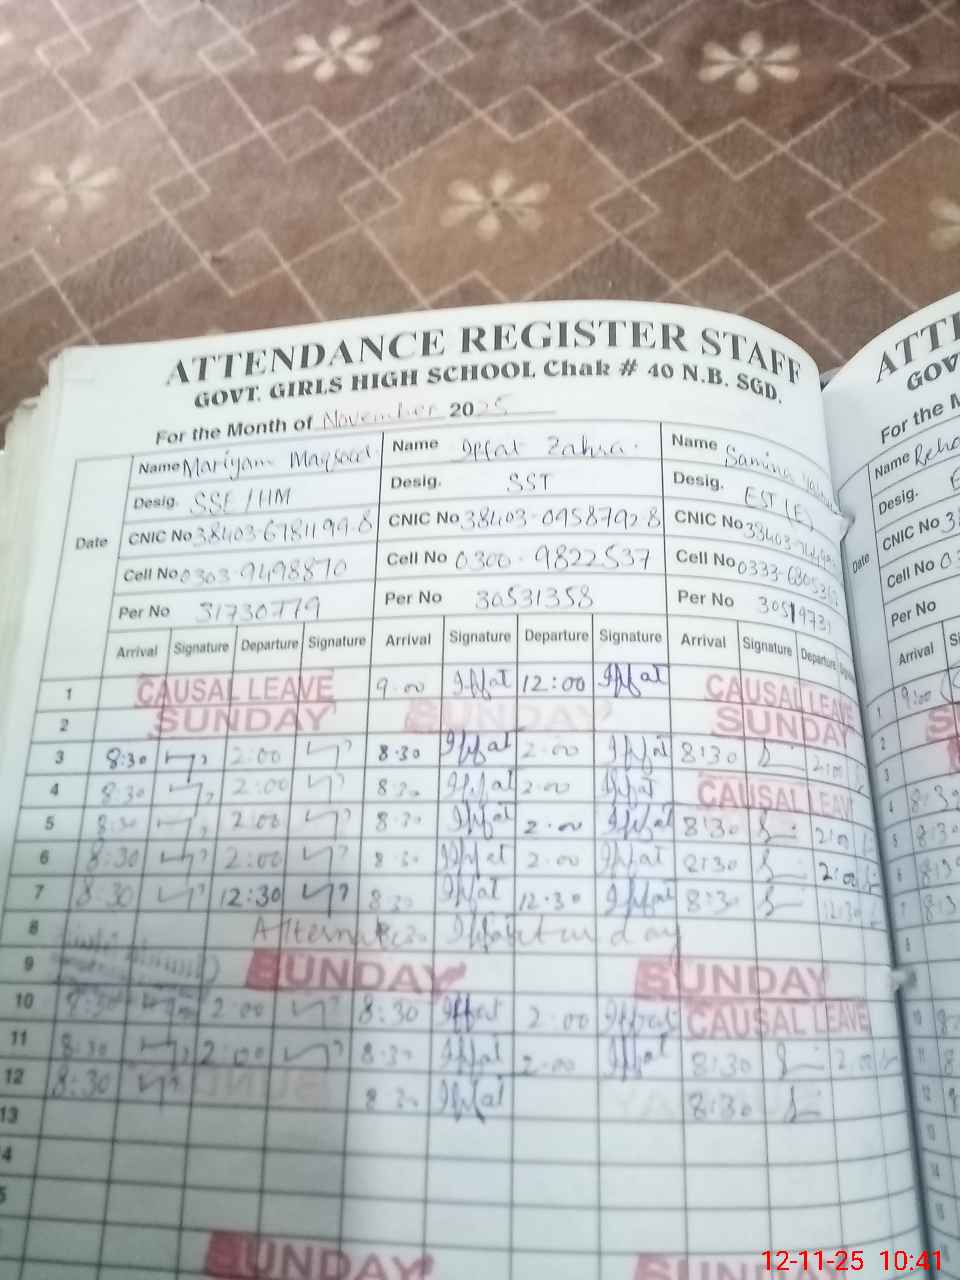 ATTENDANCE REGISTER STAFF
GOVT. GIRLS HIGH SCHOOL Chak # 40 N.B. SGD.
For the Month of November 2025
Date
Name Mariyam Maqsood Name Iffat Zahra. Name Samina
Desig. SSE/HM Desig. SST Desig. EST (E)
CNIC No 38403-6781199-8 CNIC No 38403-0958792 8 CNIC No 38403
Cell No 0303-9498870 Cell No 0300-9822537 Cell No 0333
Per No 31730779 Per No 30531358 Per No
Arrival Signature Departure Signature Arrival Signature Departure Signature Arrival Signature Departure
1 CAUSAL LEAVE 9.00 Iffat 12:00 Iffat CAUSAL LEAVE
2 SUNDAY SUNDAY SUNDAY
3 8:30 2:00 8.30 Iffat 2.00 Iffat 8:30 2:00
4 8:30 2:00 8.30 Iffat 2.00 Iffat CAUSAL LEAVE
5 8:30 2:00 8.30 Iffat 2.00 Iffat 8:30 2:00
6 8:30 2:00 8.30 Iffat 2.00 Iffat 8:30 2:00
7 8:30 12:30 8.30 Iffat 12.30 Iffat 8:30 12:30
8 Iffat
9 SUNDAY SUNDAY
10 8:30 2:00 8:30 Iffat 2:00 Iffat CAUSAL LEAVE
11 8:30 2:00 8.30 Iffat 2.00 Iffat 8:30 2:00
12 8:30 8.30 Iffat 8:30
13
SUNDAY
ATT
GOV
For the M
Name
Desig.
CNIC No
Cell No
Per No
Date
Arrival
9:00
12-11-25 10:41